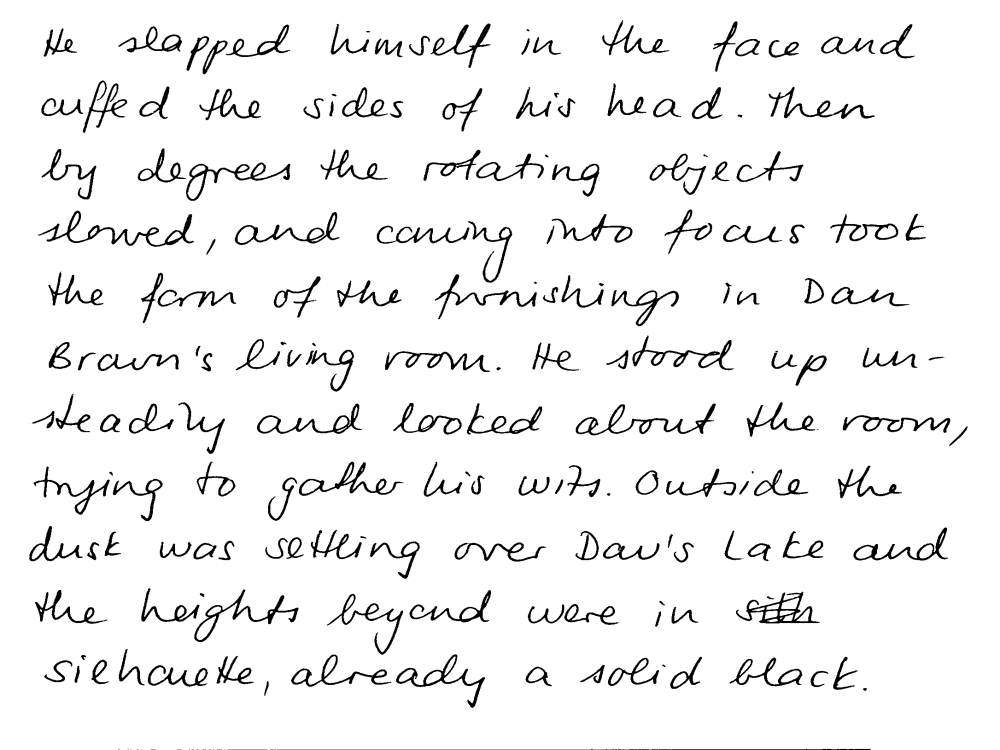 He slapped himself in the face and
cuffed the sides of his head. Then
by degrees the rotating objects
slowed, and coming into focus took
the form of the furnishings in Dan
Brawn's living room. He stood up un-
steadily and looked about the room,
trying to gather his wits. Outside the
dusk was settling over Dav's Lake and
the heights beyond were in
siehouette, already a solid black.